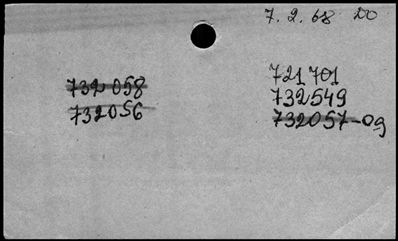 7. 2. 68 DO
732 058
732056
721 701
732549
732057-09